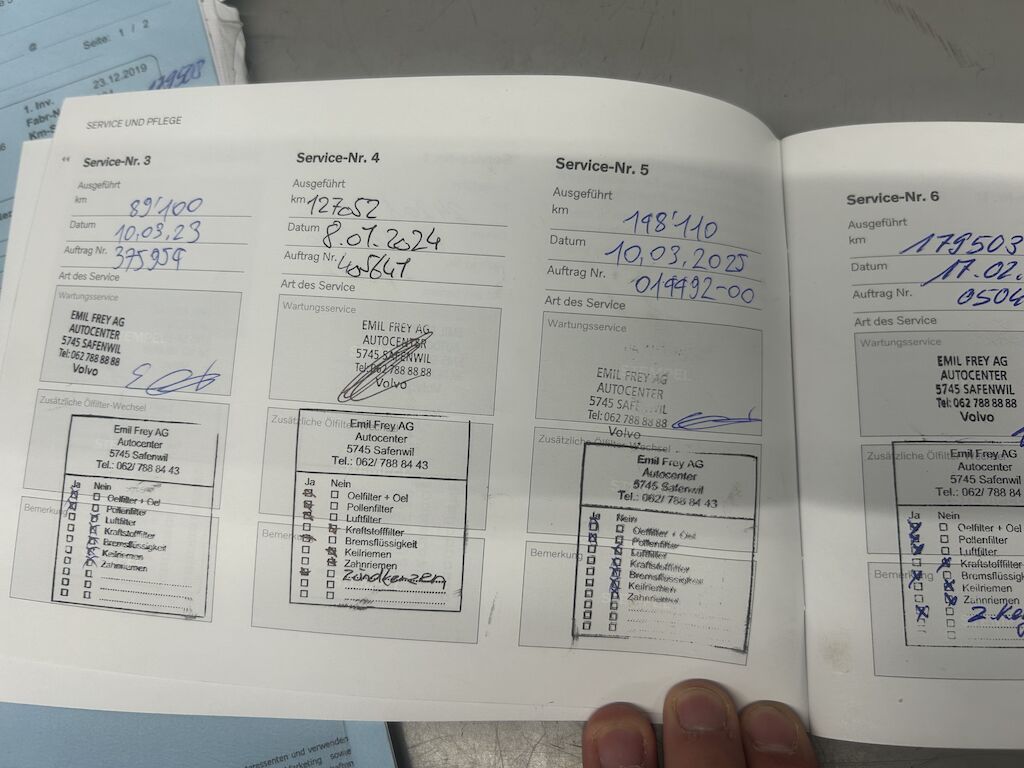 @
Seite: 1 / 2
23.12.2019
1. Inv.
179503
Fabr-N
Km-S
SERVICE UND PFLEGE
Service-Nr. 3
Ausgeführt
km 89'100
Datum 10.03.23
Auftrag Nr. 375954
Art des Service
Wartungsservice
EMIL FREY AG
AUTOCENTER
5745 SAFENWIL
Tel: 062 788 88 88
Volvo
Zusätzliche Ölfilter-Wechsel
Emil Frey AG
Autocenter
5745 Safenwil
Tel.: 062/ 788 84 43
Ja Nein
Oelfilter + Oel
Pollenfilter
Luftfilter
Kraftstofffilter
Bremsflüssigkeit
Keilriemen
Zahnriemen
Bemerkung
Service-Nr. 4
Ausgeführt
km 127052
Datum 8.01.2024
Auftrag Nr. 405641
Art des Service
Wartungsservice
EMIL FREY AG
AUTOCENTER
5745 SAFENWIL
Tel: 062 788 88 88
Volvo
Zusätzliche Ölfilter
Emil Frey AG
Autocenter
5745 Safenwil
Tel.: 062/ 788 84 43
Ja Nein
Oelfilter + Oel
Pollenfilter
Luftfilter
Kraftstofffilter
Bremsflüssigkeit
Keilriemen
Zahnriemen
Zündkerzen
Bemerk
Service-Nr. 5
Ausgeführt
km 148'110
Datum 10.03.2025
Auftrag Nr. 014492-00
Art des Service
Wartungsservice
EMIL FREY AG
AUTOCENTER
5745 SAF
Tel: 062 788 88 88
Volvo
Zusätzliche Ölfilter-Wechsel
Emil Frey AG
Autocenter
5745 Safenwil
Tel.: 062/ 788 84 43
Ja Nein
Oelfilter + Oel
Pollenfilter
Luftfilter
Kraftstofffilter
Bremsflüssigkeit
Keilriemen
Zahnriemen
Bemerkung
Service-Nr. 6
Ausgeführt
km 179503
Datum 17.02.
Auftrag Nr. 0504
Art des Service
Wartungsservice
EMIL FREY AG
AUTOCENTER
5745 SAFENWIL
Tel: 062 788 88 88
Volvo
Zusätzliche Ölfilter
Emil Frey AG
Autocenter
5745 Safenwil
Tel.: 062/ 788 84
Ja Nein
Oelfilter + Oel
Pollenfilter
Luftfilter
Kraftstofffilter
Bremsflüssig
Keilriemen
Zahnriemen
Z.Ke
Bemerkung
essenten und verwenden
Marketing sowie